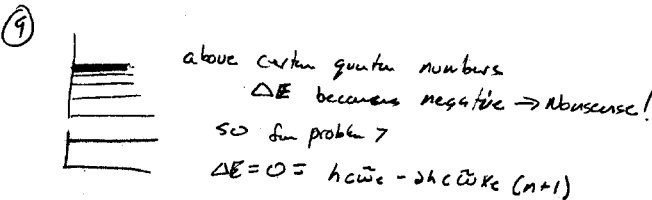 9
above certen quantun numbers
ΔE becomes negative → Nonsense!
so from problem 7
ΔE = 0 = hcω̃e - 2hcω̃xe (n+1)